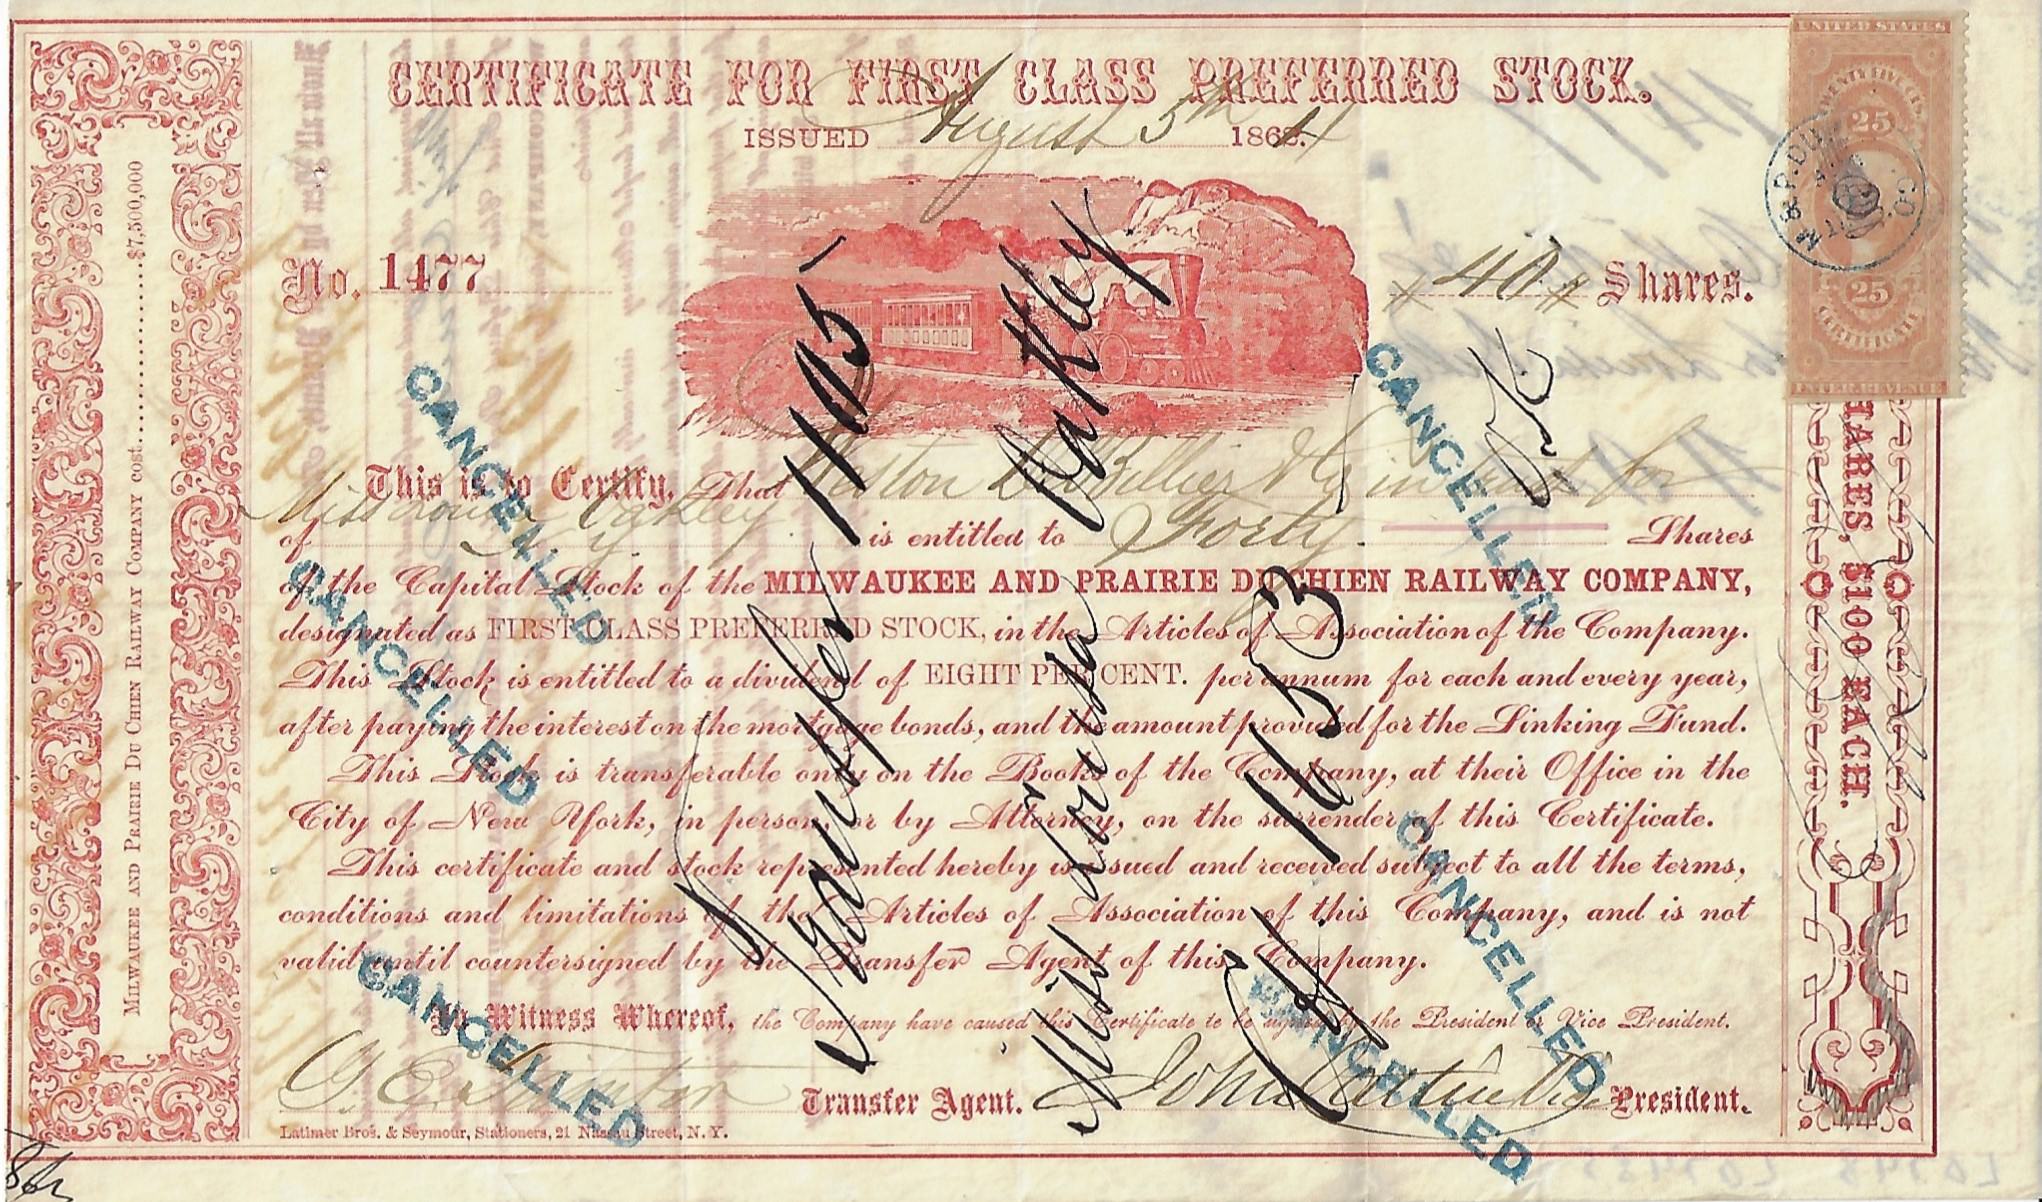 CERTIFICATE FOR FIRST CLASS PREFERRED STOCK.
ISSUED August 5th 1864
No. 1477
40 Shares.
UNITED STATES
TWENTY FIVE CTS.
25
25
CERTIFICATE
INTER. REVENUE
This is to Certify, That Weston DeBillier & Co in trust for
Miss Louisa Oakley
of N. Y. is entitled to Forty Shares
of the Capital Stock of the MILWAUKEE AND PRAIRIE DU CHIEN RAILWAY COMPANY,
designated as FIRST CLASS PREFERRED STOCK, in the Articles of Association of the Company.
This Stock is entitled to a dividend of EIGHT PER CENT. per annum for each and every year,
after paying the interest on the mortgage bonds, and the amount provided for the Sinking Fund.
This Stock is transferable only on the Books of the Company, at their Office in the
City of New York, in person, or by Attorney, on the surrender of this Certificate.
This certificate and stock represented hereby is issued and received subject to all the terms,
conditions and limitations of the Articles of Association of this Company, and is not
valid until countersigned by the Transfer Agent of this Company.
In Witness Whereof, the Company have caused this Certificate to be signed by the President or Vice President.
Transfer Agent.
John Catlin Vice President.
Latimer Bros. & Seymour, Stationers, 21 Nassau Street, N. Y.
MILWAUKEE AND PRAIRIE DU CHIEN RAILWAY COMPANY cost $7,500,000
SHARES, $100 EACH.
Transfer 1105
Miss Louisa Oakley
1653
OK
CANCELLED
CANCELLED
CANCELLED
CANCELLED
CANCELLED
CANCELLED